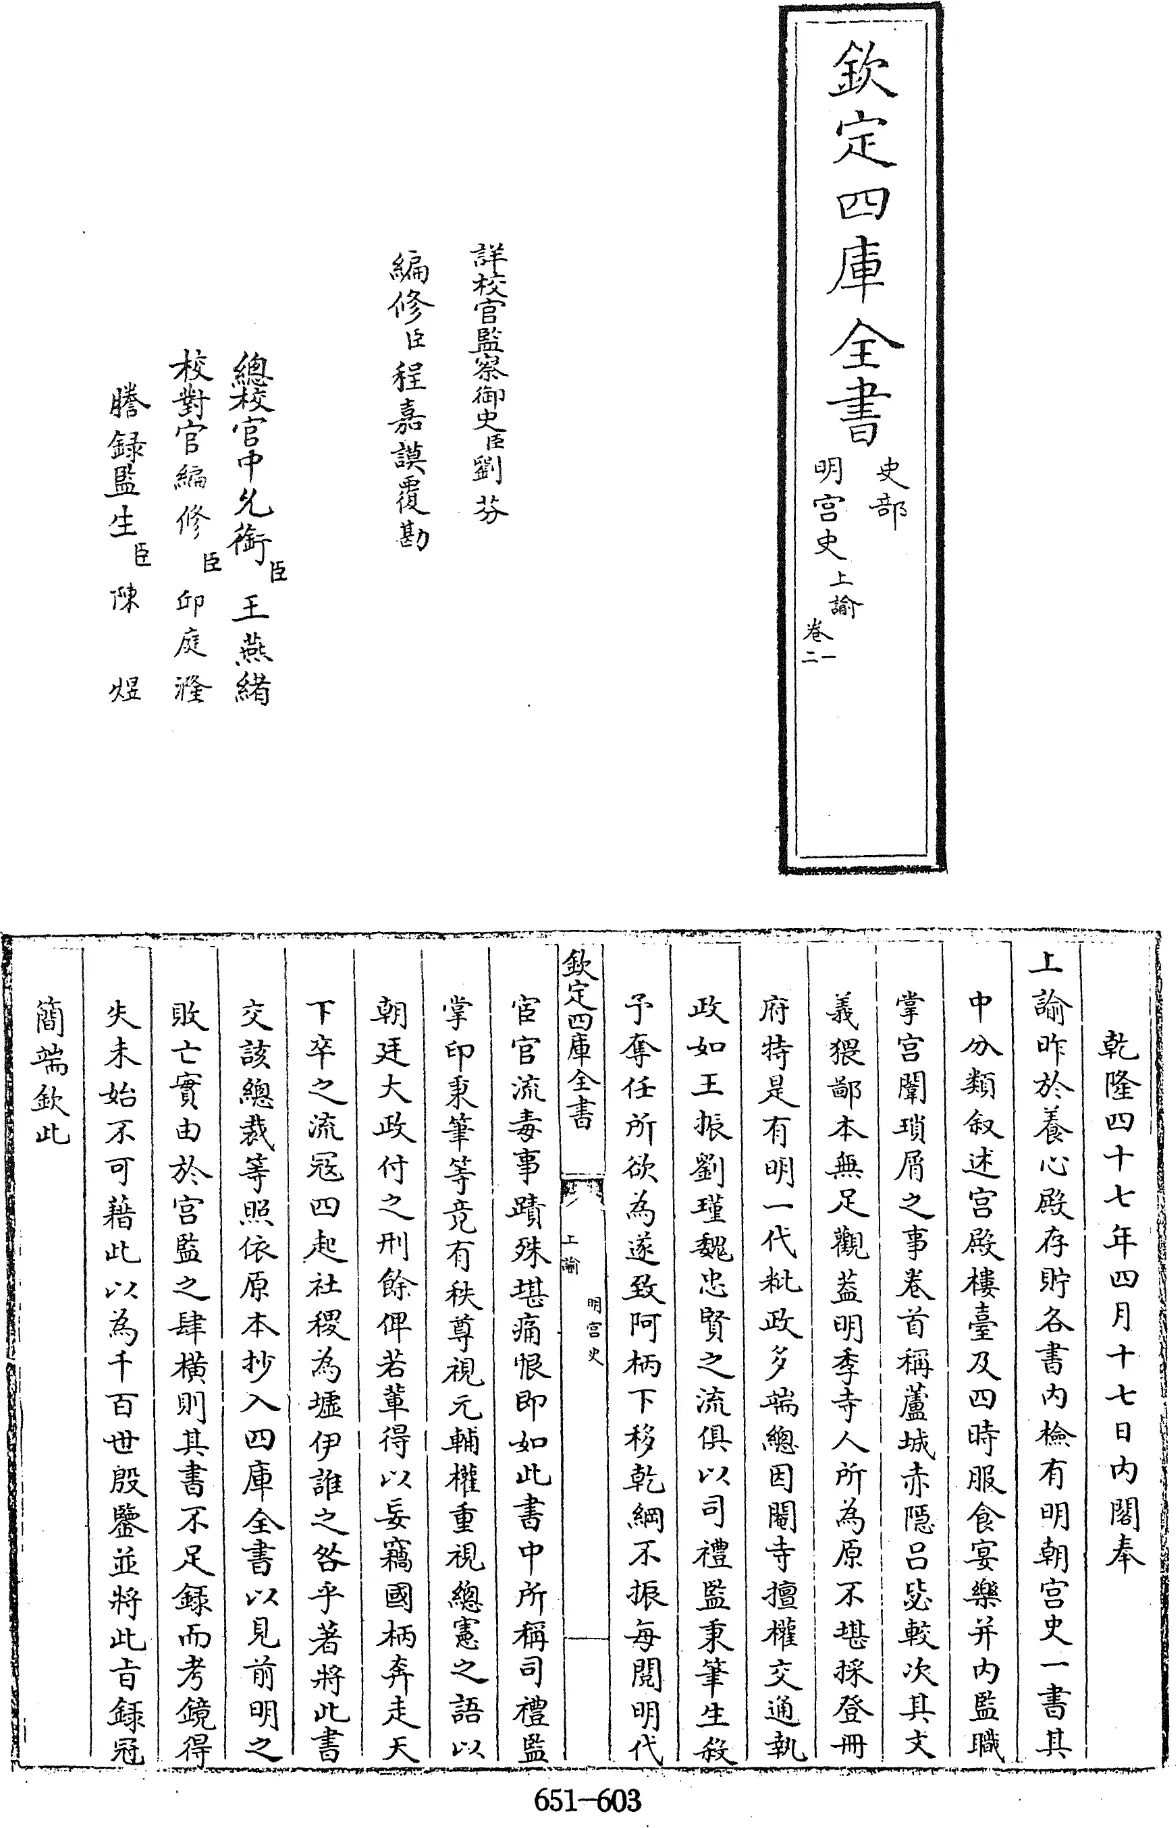 欽定四庫全書
史部
明宫史
上諭
卷一
二
詳校官監察御史臣劉芬
編修臣程嘉謨覆勘
總校官中允銜臣王燕緒
校對官編修臣邱庭漋
謄録監生臣陳煜
乾隆四十七年四月十七日内閣奉
上諭昨於養心殿存貯各書内檢有明朝宫史一書其
中分類叙述宫殿樓臺及四時服食宴樂并内監職
掌宫闈瑣屑之事卷首稱蘆城赤隠吕毖較次其文
義猥鄙本無足觀葢明季寺人所為原不堪採登冊
府特是有明一代粃政多端總因閹寺擅權交通執
政如王振劉瑾魏忠賢之流俱以司禮監秉筆生殺
予奪任所欲為遂致阿柄下移乾綱不振每閱明代
欽定四庫全書
上諭
明宫史
宦官流毒事蹟殊堪痛恨即如此書中所稱司禮監
掌印秉筆等竟有秩尊視元輔權重視總憲之語以
朝廷大政付之刑餘俾若輩得以妄竊國柄奔走天
下卒之流冦四起社稷為墟伊誰之咎乎著將此書
交該總裁等照依原本抄入四庫全書以見前明之
敗亡實由於宫監之肆横則其書不足録而考鏡得
失未始不可藉此以為千百世殷鑒並將此旨録冠
簡端欽此
651-603